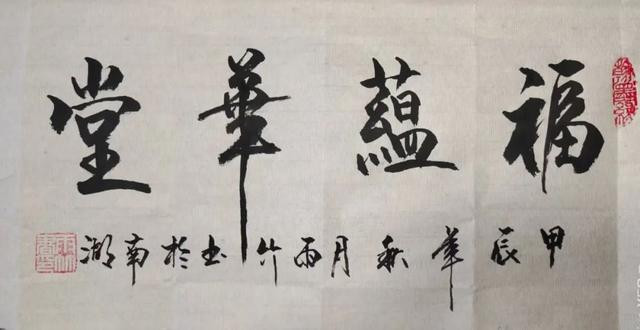 福蘊華堂
甲辰年秋月雨竹书於南湖